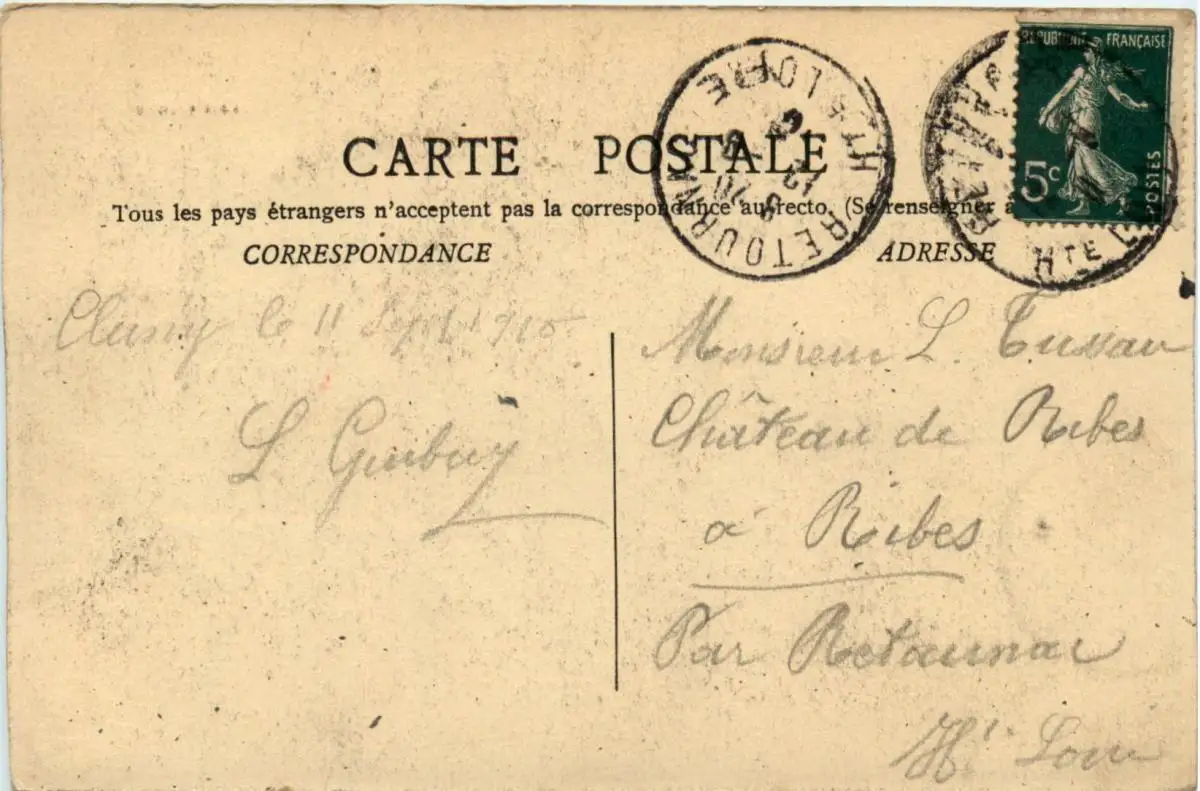 CARTE POSTALE
Tous les pays étrangers n'acceptent pas la correspondance au recto. (Se renseigner à
CORRESPONDANCE
ADRESSE
RÉPUBLIQUE FRANÇAISE
5c
POSTES
HTE LOIRE
RETOURNAC
HTE L
le 11 Sept 1910
L.
Monsieur L.
Château de Ribes
à Ribes
Par Retournac
Hte Loire